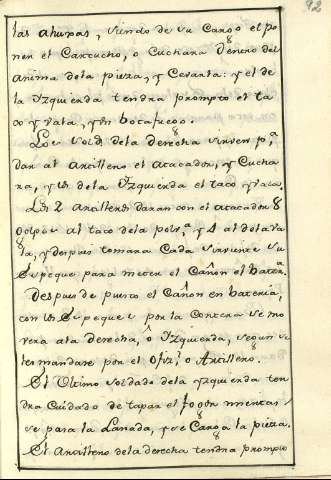 92
las ahujas, siendo de su Cargo el po
ner el Cartucho, o Cuchara dentro del
anima dela pieza, y Cevarla: y el de
la Yzquierda tendra prompto el ta
co y vala, y un bocafuego.
Los Sold.s dela derecha sirven p.a
dar al Artillero el atacador, y Cucha
ra, y los dela Yzquierda el taco y vala.
Los 2 Artilleros daran con el atacador 8
Golpes al taco dela polv.a y 4 al dela va
la, y despues tomara Cada sirviente su
Espeque para meter el Cañon el bater.a
Despues de puesto el Cañon en bateria,
con los Espeques por la Contera se mo
vera ala derecha, ô Yzquierda, segun se
les mandare por el Ofiz.l o Artillero.
El Ultimo soldado dela yzquierda ten
dra Cuidado de tapar el fogon mientras
se pasa la Lanada, y se Carga la pieza.
El Artillero dela derecha tendra prompto